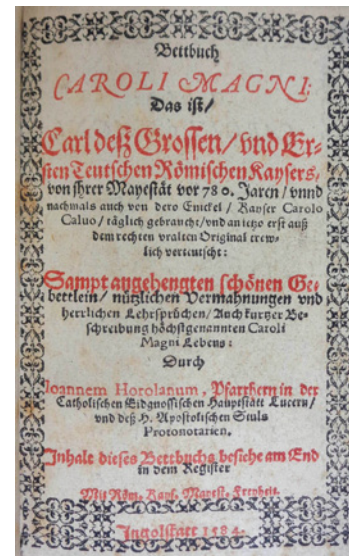 Bettbuch
CAROLI MAGNI:
Das ist/
Carl deß Grossen/ vnd Er-
sten Teutschen Römischen Kaysers,
von ihrer Mayestät vor 780. Jaren/ vnnd
nachmals auch von dero Enickel/ Kayser Carolo
Caluo/ täglich gebraucht/ vnd an ietzo erst auß
dem rechten vralten Original trew-
lich verteutscht:
Sampt angehengten schönen Ge-
bettlein/ nützlichen Vermahnungen vnd
herrlichen Lehrsprüchen/ Auch kurtzer Be-
schreibung höchstgenannten Caroli
Magni Lebens:
Durch
Ioannem Horolanum, Pfarrhern in der
Catholischen Eidgnossischen Hauptstatt Lucern/
vnd deß H. Apostolischen Stuls
Protonotarien.
Inhalt dieses Bettbuchs besihe am End
in dem Register
Mit Röm. Kays. Mayest. Freyheit.
Ingolstatt 1584.